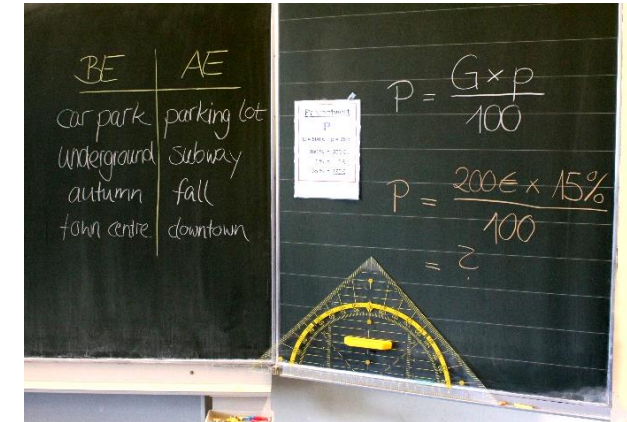 BE AE
car park parking lot
underground subway
autumn fall
town centre downtown
P = G × p
100
P = 200€ × 15%
100
= ?